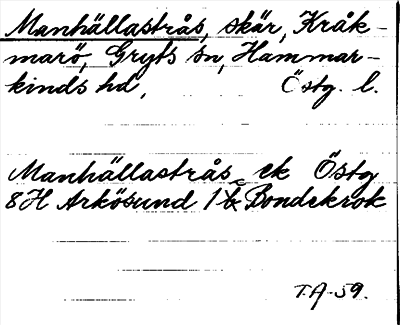 Manhällastrås, skär, Kråk-
marö, Gryts sn, Hammar-
kinds hd, Östg. l.
Manhällastrås ek Östg
8H Arkösund 1 c Bondekrok
T.A-59.